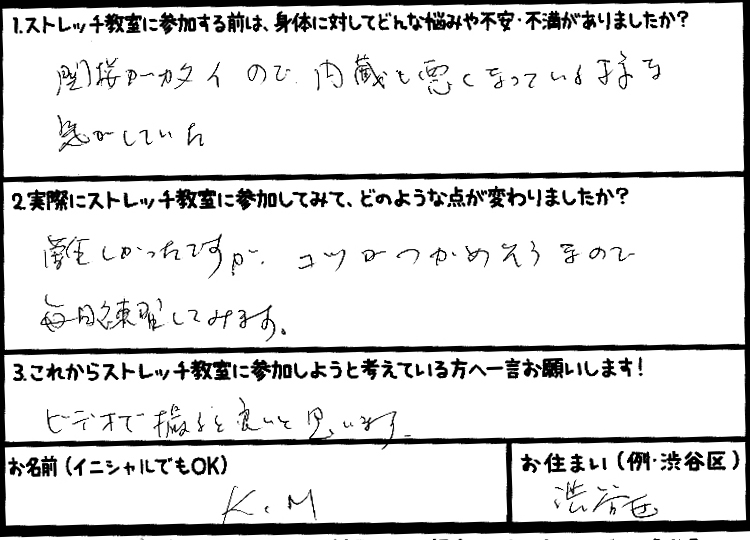 1.ストレッチ教室に参加する前は、身体に対してどんな悩みや不安・不満がありましたか?
関接がカタイので、内蔵も悪くなっている様な
気がしていた
2.実際にストレッチ教室に参加してみて、どのような点が変わりましたか?
難しかったですが、コツがつかめそうなので
毎日練習してみます。
3.これからストレッチ教室に参加しようと考えている方へ一言お願いします!
ビデオで撮ると良いと思います。
お名前(イニシャルでもOK)
K.M
お住まい(例・渋谷区)
渋谷区